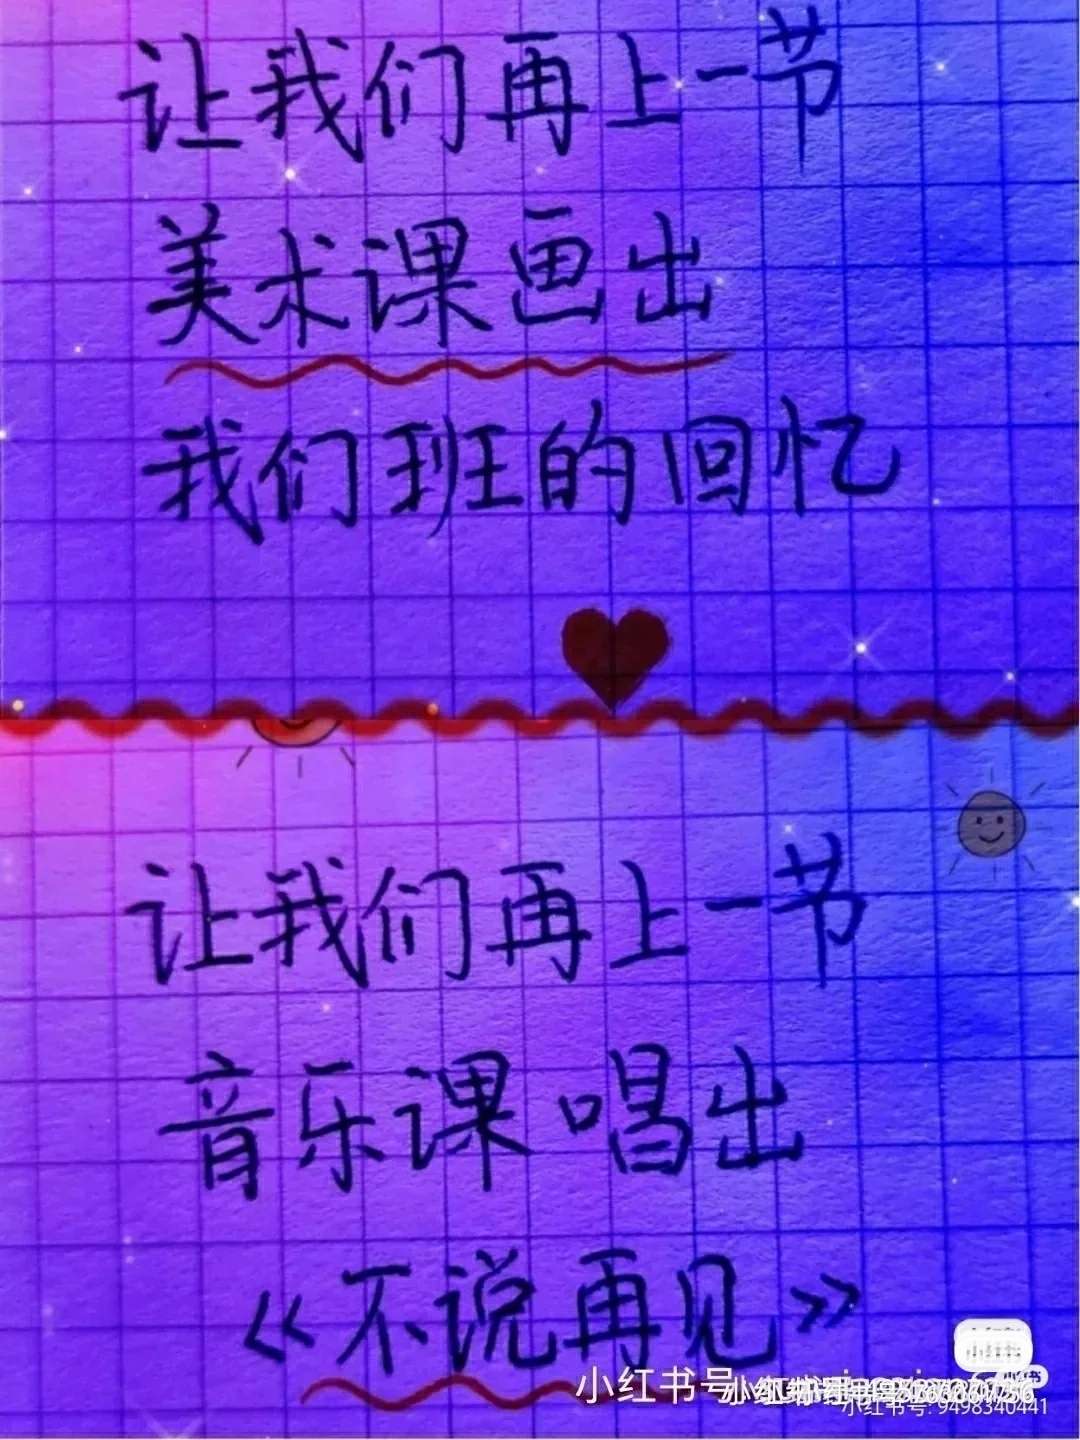 让我们再上一节
美术课画出
我们班的回忆
让我们再上一节
音乐课 唱出
《不说再见》
小红书
小红书号: 9498340441